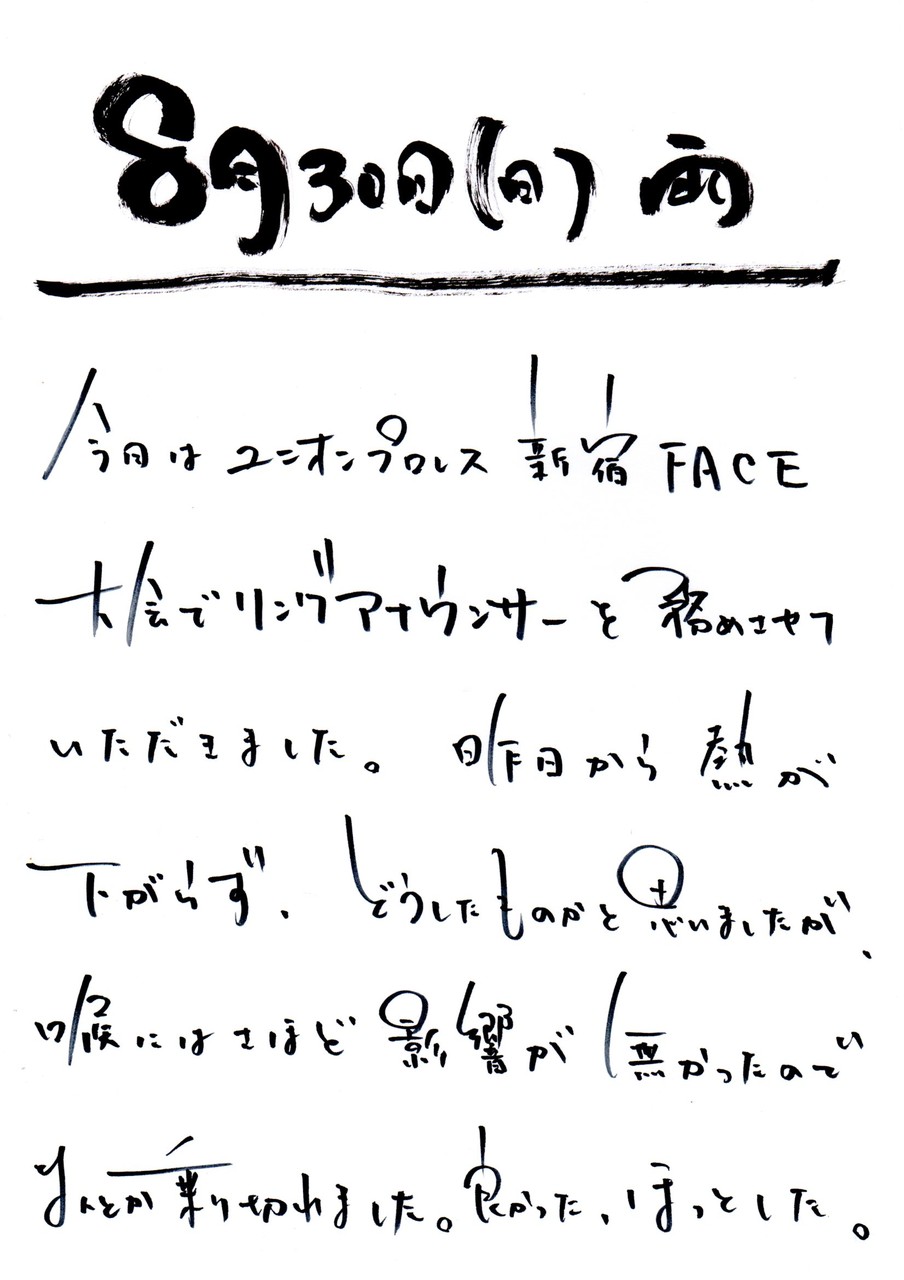 8月30日(日) 雨
今日は ユニオンプロレス 新宿 FACE
大会でリングアナウンサーを務めさせて
いただきました。 昨日から熱が
下がらず、どうしたものかと思いましたが、
喉にはさほど影響が無かったので
なんとか乗り切れました。良かった、ほっとした。